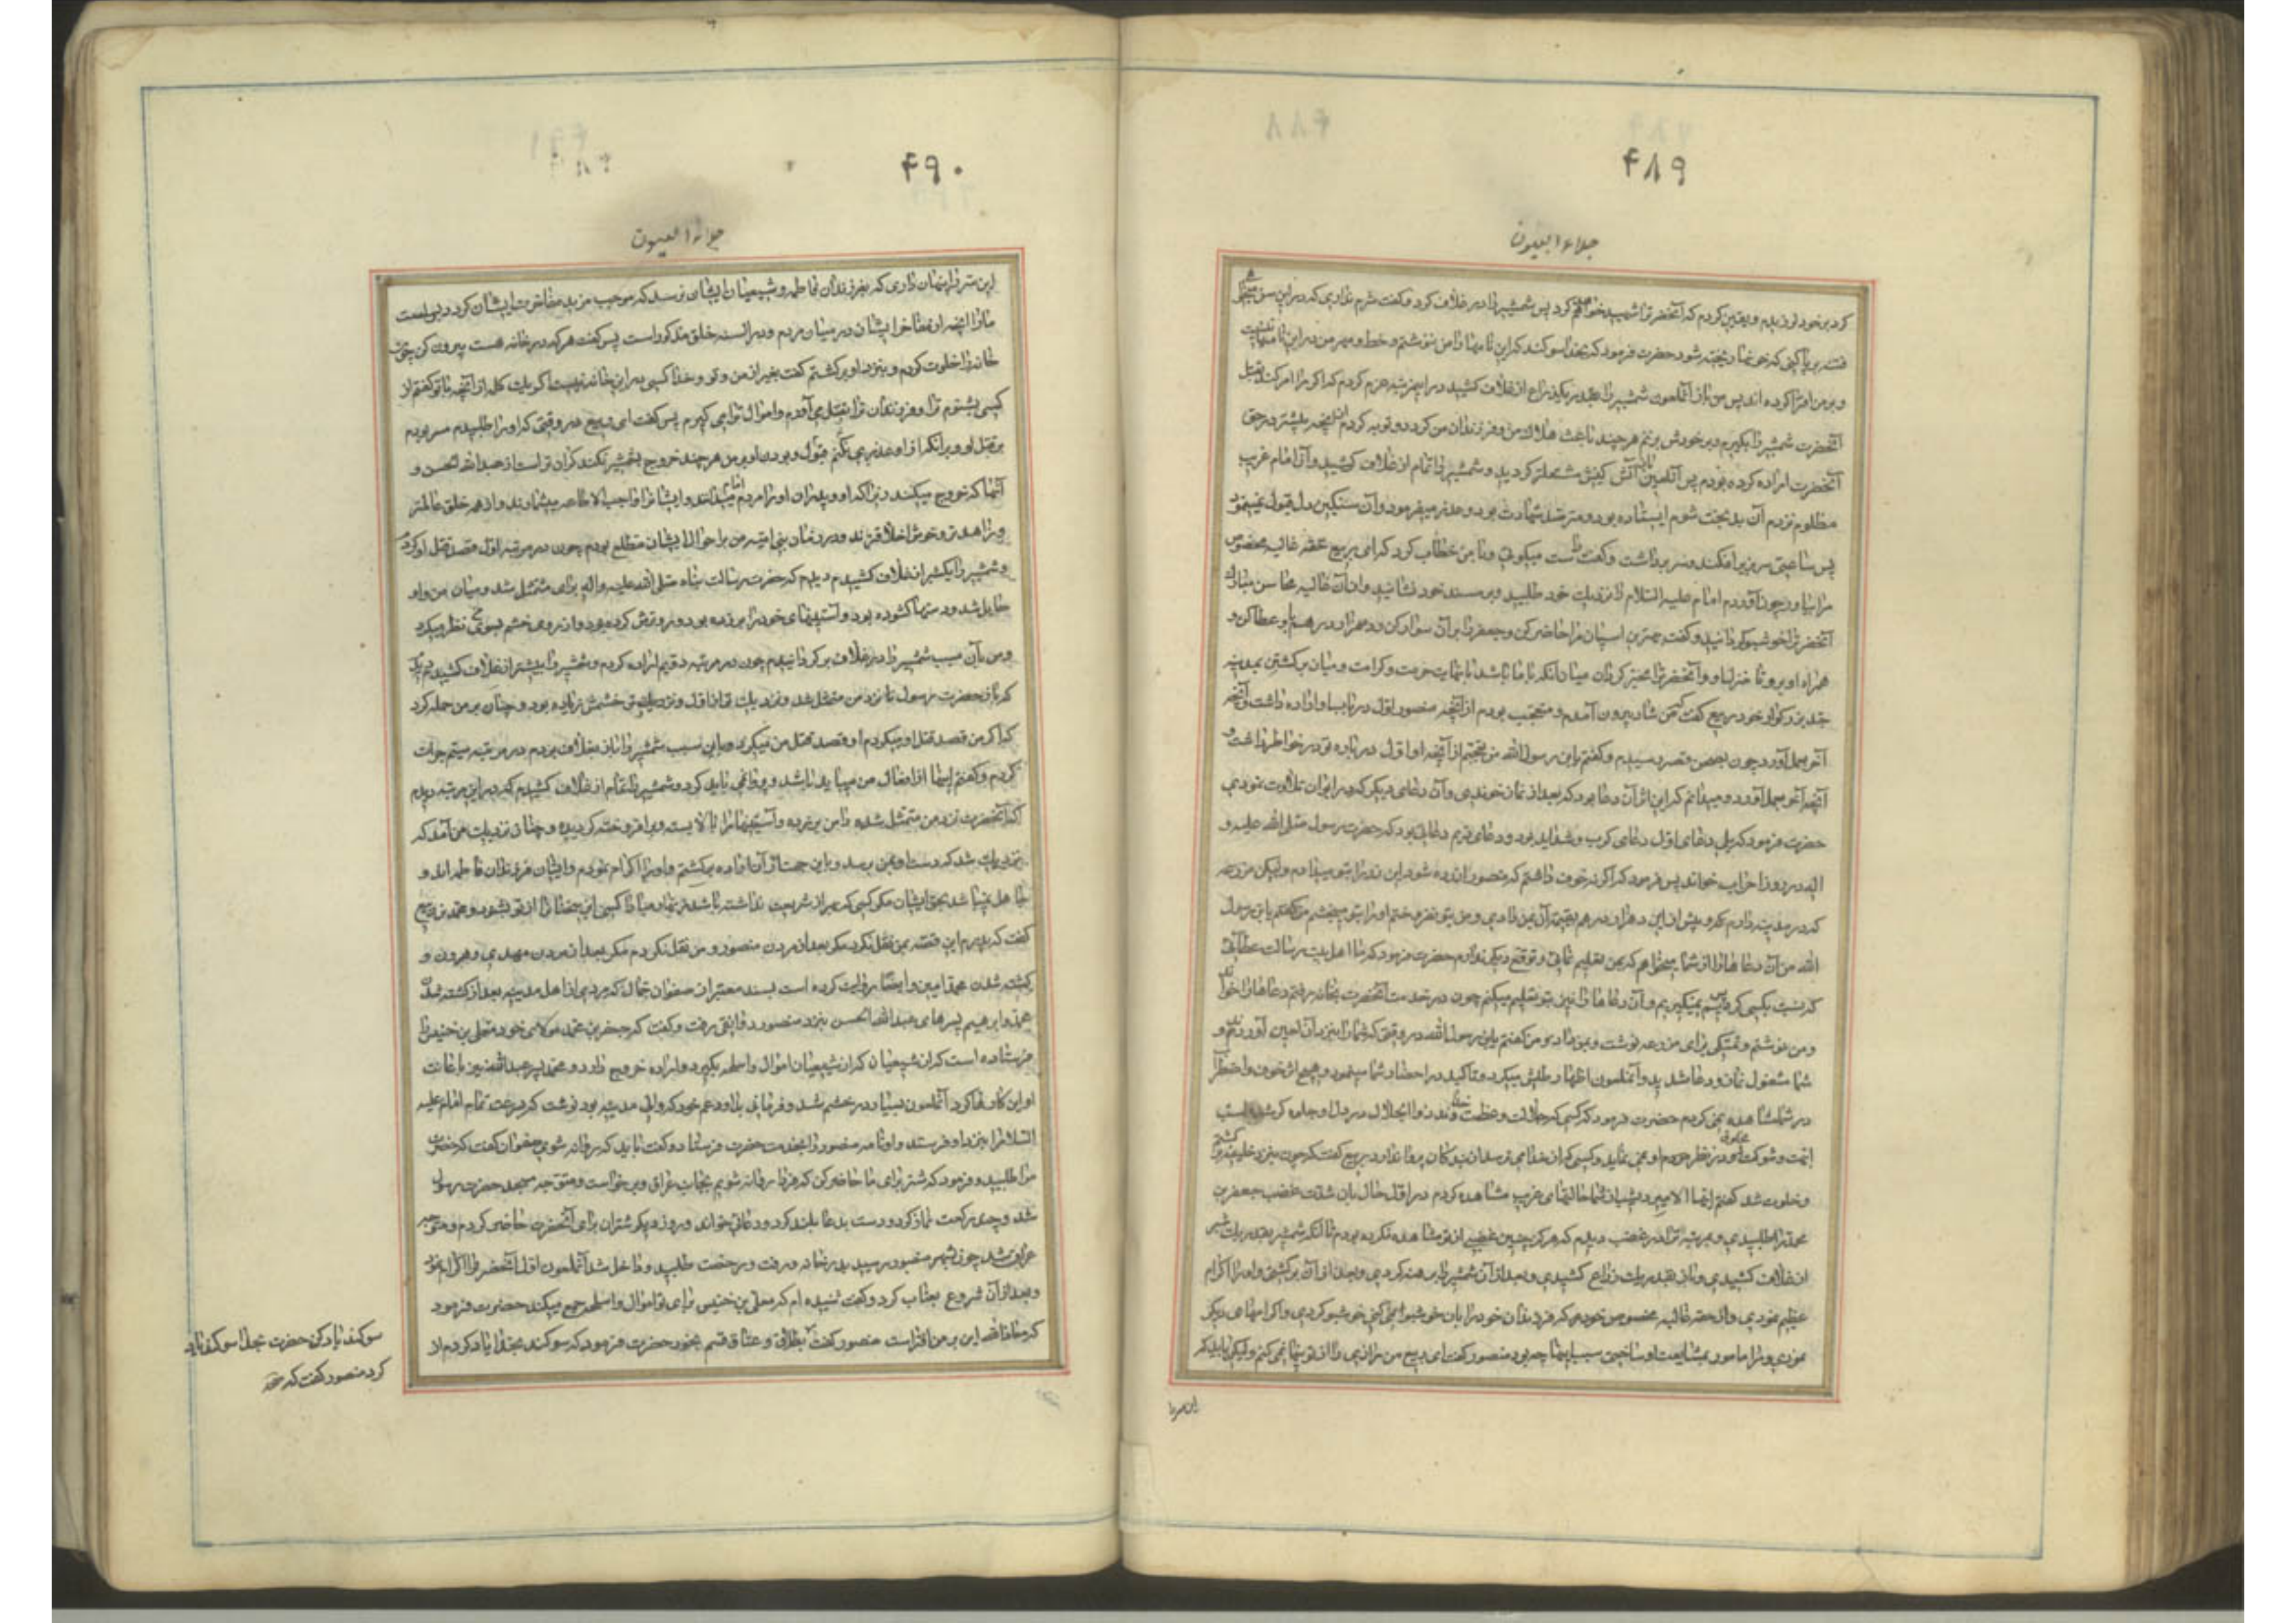 ۴۸۹
جلاء العیون
کرد بر خود لرزیدم و یقین کردم که آنحضرت را شهید خواهم کرد پس شمشیر را در غلاف کرد و گفت شرم نداری که در این سن میخواهی
فتنه برپا کنی که خونها ریخته شود حضرت فرمود که بخدا سوکند که این نامها را من ننوشتم و خط و مهر من در این نامها نیست
و بر من افترا کرده اند پس من باز آنملعون شمشیر را بقدر یکذراع از غلاف کشید در اینمرتبه عزم کردم که اکر مرا امر کند بقتل
آنحضرت شمشیر را بکیرم و بر خودش بزنم هر چند باعث هلاک من و فرزندان من کردد و توبه کردم از آنچه پیشتر در حق
آنحضرت اراده کرده بودم پس آتش کینش مشتعلتر کردید و شمشیر را تمام از غلاف کشید و آن امام غریب
مظلوم نزد آن بدبخت شوم ایستاده بود و مترصد شهادت بود و عذر میفرمود و آن سنکین دل قبول نمینمود
پس ساعتی سر بزیر افکند و سر برداشت و گفت راست میکوئی و با من خطاب کرد که ای ربیع حقه غالیه مخصوص
مرا بیاور چون آوردم امام علیه السلام را نزدیک خود طلبید و بر مسند خود نشانید و از آن غالیه محاسن مبارک
آنحضرت را خوشبو کردانید و گفت بهترین اسپان مرا حاضر کن و جعفر را بر آن سوار کن و ده هزار درهم باو عطا کن و
همراه او برو تا منزل او و آنحضرت را مخیر کردان میان آنکه با ما باشد با نهایت حرمت و کرامت و میان برکشتن بمدینه
جد بزرکوار خود ربیع گفت که من شاد بیرون آمدم و متعجب بودم از آنچه منصور اول در باب او اراده داشت و آنچه
آخر بعمل آورد چون بصحن قصر رسیدم و گفتم یا بن رسول الله من متعجبم از آنچه او اول در باره تو در خواطر داشت و
آنچه آخر بعمل آورد و میدانم که این اثر آن دعا بود که بعد از نماز خوندی و آن دعای دیکر که در ایوان تلاوت نمودی
حضرت فرمود که بلی دعای اول دعای کرب و شداید بود و دعای دویم دعائی بود که حضرت رسول صلی الله علیه و
آله در روز احزاب خواند پس فرمود که اکر نه خوف داشتم که منصور آزرده شود این زر را بتو میدادم و لیکن مزرعه
که در مدینه دارم که پیش از این ده هزار درهم بقیمت آن بمن دادی و من بتو نفروختم او را بتو میبخشم من گفتم یا بن رسول
الله من آن دعاها را از شما میخواهم که بمن تعلیم نمائی و توقع دیکر ندارم حضرت فرمود که ما اهل بیت رسالت عطائی
که نسبت بکسی کردیم پس نمیکیریم و آن دعاها را نیز بتو تعلیم میکنم چون در خدمت آنحضرت بخانه رفتم دعاها را خواند
و من نوشتم و تمسکی برای مزرعه نوشت و بمن داد و من گفتم یا بن رسول الله در وقتی که شما را بنزد آن لعین آوردند و
شما مشغول نماز و دعا شدید و آنملعون اظهار طیش میکرد و تاکید در احضار شما مینمود و هیچ اثر خوف و اضطراب
در شما مشاهده نمی کردم حضرت فرمود که کسی که جلالت و عظمت خداوند ذو الجلال در دل او جلوه کر شده است
ابهت و شوکت مخلوق در نظر او نمی نماید و کسی که از خدا می ترسد از بندکان پروا ندارد ربیع گفت که چون بنزد خلیفه برکشتم
و خلوت شد گفتم ایها الامیر دیشب از شما حالتهای غریب مشاهده کردم در اول حال بآن شدت غضب جعفر بن
محمد را طلبیدی و بمرتبه ترا در غضب دیدم که هرکز چنین غضبی از تو مشاهده نکرده بودم تا آنکه شمشیر بقدر یک شبر
از غلاف کشیدی و باز بقدر یک ذراع کشیدی و بعد از آن شمشیر را برهنه کردی و بعد از آن برکشتی و او را اکرام
عظیم نمودی و از حقه غالیه مخصوص خود که فرزندان خود را بآن خوشبو نمی کنی خوشبو کردی و اکرامهای دیکر
نمودی و مرا مامور بمشایعت او ساختی سبب اینها چه بود منصور گفت ای ربیع من رازی را از تو پنهان نمی کنم و لیکن باید که
این سر را
۴۹۰
جلاء العیون
این سر را پنهان داری که بفرزندان فاطمه و شیعیان ایشان نرسد که موجب مزید مفاخرت ایشان کردد بس است
ما را آنچه از مفاخر ایشان در میان مردم و در السنه خلق مذکور است پس گفت هر که در خانه هست بیرون کن چون
خانه را خلوت کردم و بنزد او برکشتم گفت بغیر از من و تو و خدا کسی در این خانه نیست اکر یک کلمه از آنچه با تو گفتم از
کسی بشنوم ترا و فرزندان ترا بقتل می آورم و اموال ترا می کیرم پس گفت ای ربیع در وقتی که او را طلبیدم مصر بودم
بر قتل او و بر آنکه از او عذری نکنم قبول و بودن او بر من هر چند خروج بشمشیر نکند کران تر است از عبد الله بن الحسن و
آنها که خروج میکنند زیرا که او و پدران او را مردم امام میدانند و ایشان را واجب الاطاعه میشمارند و از همه خلق عالمتر
و زاهدتر و خوش اخلاقترند و در زمان بنی امیه من بر احوال ایشان مطلع بودم چون در مرتبه اول قصد قتل او کردم
و شمشیر را یکشبر از غلاف کشیدم دیدم که حضرت رسالت پناه صلی الله علیه و اله برای متمثل شد و میان من و او
حایل شد و دستها کشوده بود و آستینهای خود را بر زده بود و رو ترش کرده بود و از روی خشم بسوی من نظر میکرد
و من بآن سبب شمشیر را در غلاف بر کردانیدم چون در مرتبه دویم اراده کردم و شمشیر را بیشتر از غلاف کشیدم دیدم
که باز حضرت رسول نزد من متمثل شد و نزدیک تر از اول و خشمش زیاده بود و چنان بر من حمله کرد
که اکر من قصد قتل او میکردم او قصد قتل من میکرد و باین سبب شمشیر را باز بغلاف بردم در مرتبه سیم جرات
کردم و گفتم اینها از افعال جن میباید باشد و پروا نمی باید کرد و شمشیر را تمام از غلاف کشیدم که در این مرتبه دیدم
که آنحضرت نزد من متمثل شده دامن بر زده و آستینها را بالا بسته و برافروخته کردیده و چنان نزدیک من آمد که
نزدیک شد که دست او بمن برسد و باین جهت از آن اراده برکشتم و او را اکرام نمودم و ایشان فرزندان فاطمه اند و
جاهل نمیباشد بحق ایشان مکر کسی که بهره از شریعت نداشته باشد زنهار مبادا کسی این سخنان را از تو بشنود محمد بن ربیع
گفت که پدرم این قصه بمن نقل نکرد مکر بعد از مردن منصور و من نقل نکردم مکر بعد از مردن مهدی و هرون و
کشته شدن محمد امین و ایضا روایت کرده است بسند معتبر از صفوان جمال که مردی از اهل مدینه بعد از کشته شدن
محمد و ابرهیم پسرهای عبد الله الحسن بنزد منصور دوانقی رفت و گفت که جعفر بن محمد مولای خود معلی بن خنیس را
فرستاده است که از شیعیان که از شیعیان اموال و اسلحه بکیرد و اراده خروج دارد و محمد پسر عبد الله نیز باعانت
او این کارها کرد آنملعون بسیار در خشم شد و فرمانی بداود عم خود که والی مدینه بود نوشت که بسرعت تمام امام علیه
السلام را بنزد او فرستد و او نامه منصور را بخدمت حضرت فرستاد و گفت باید که روانه شوی صفوان گفت که حضرت
مرا طلبید و فرمود که شتر برای ما حاضر کن که فردا روانه شویم بجانب عراق و برخواست و متوجه مسجد حضرت رسول
شد و چند رکعت نماز کرد و دست بدعا بلند کرد و دعائی خواند و روز دیکر شتران برای آنحضرت حاضر کردم و متوجه
عراق شد چون بشهر منصور رسید بدر خانه او رفت و رخصت طلبید و داخل شد آنملعون اول آنحضرت را اکرام نمود
و بعد از آن شروع بعتاب کرد و گفت شنیده ام که معلی بن خنیس برای تو اموال و اسلحه جمع میکند حضرت فرمود
که معاذ الله این بر من افتراست منصور گفت بطلاق و عتاق قسم بخور حضرت فرمود که سوکند بخدا یاد کردم از
سوکند یاد کن حضرت بخدا سوکند یاد
کرد منصور گفت که